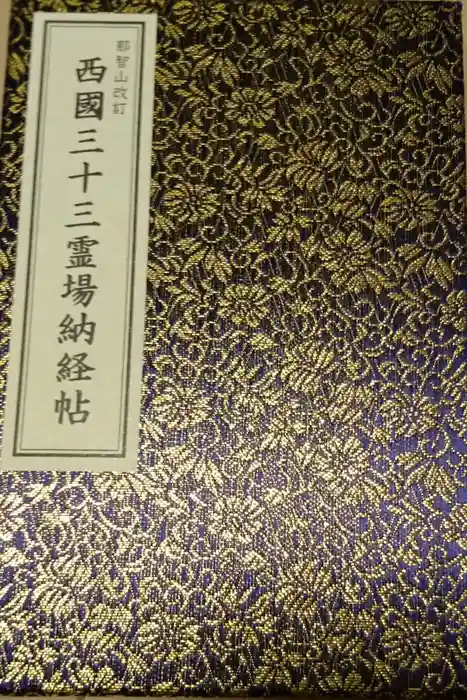 那智山改訂
西國三十三霊場納経帖